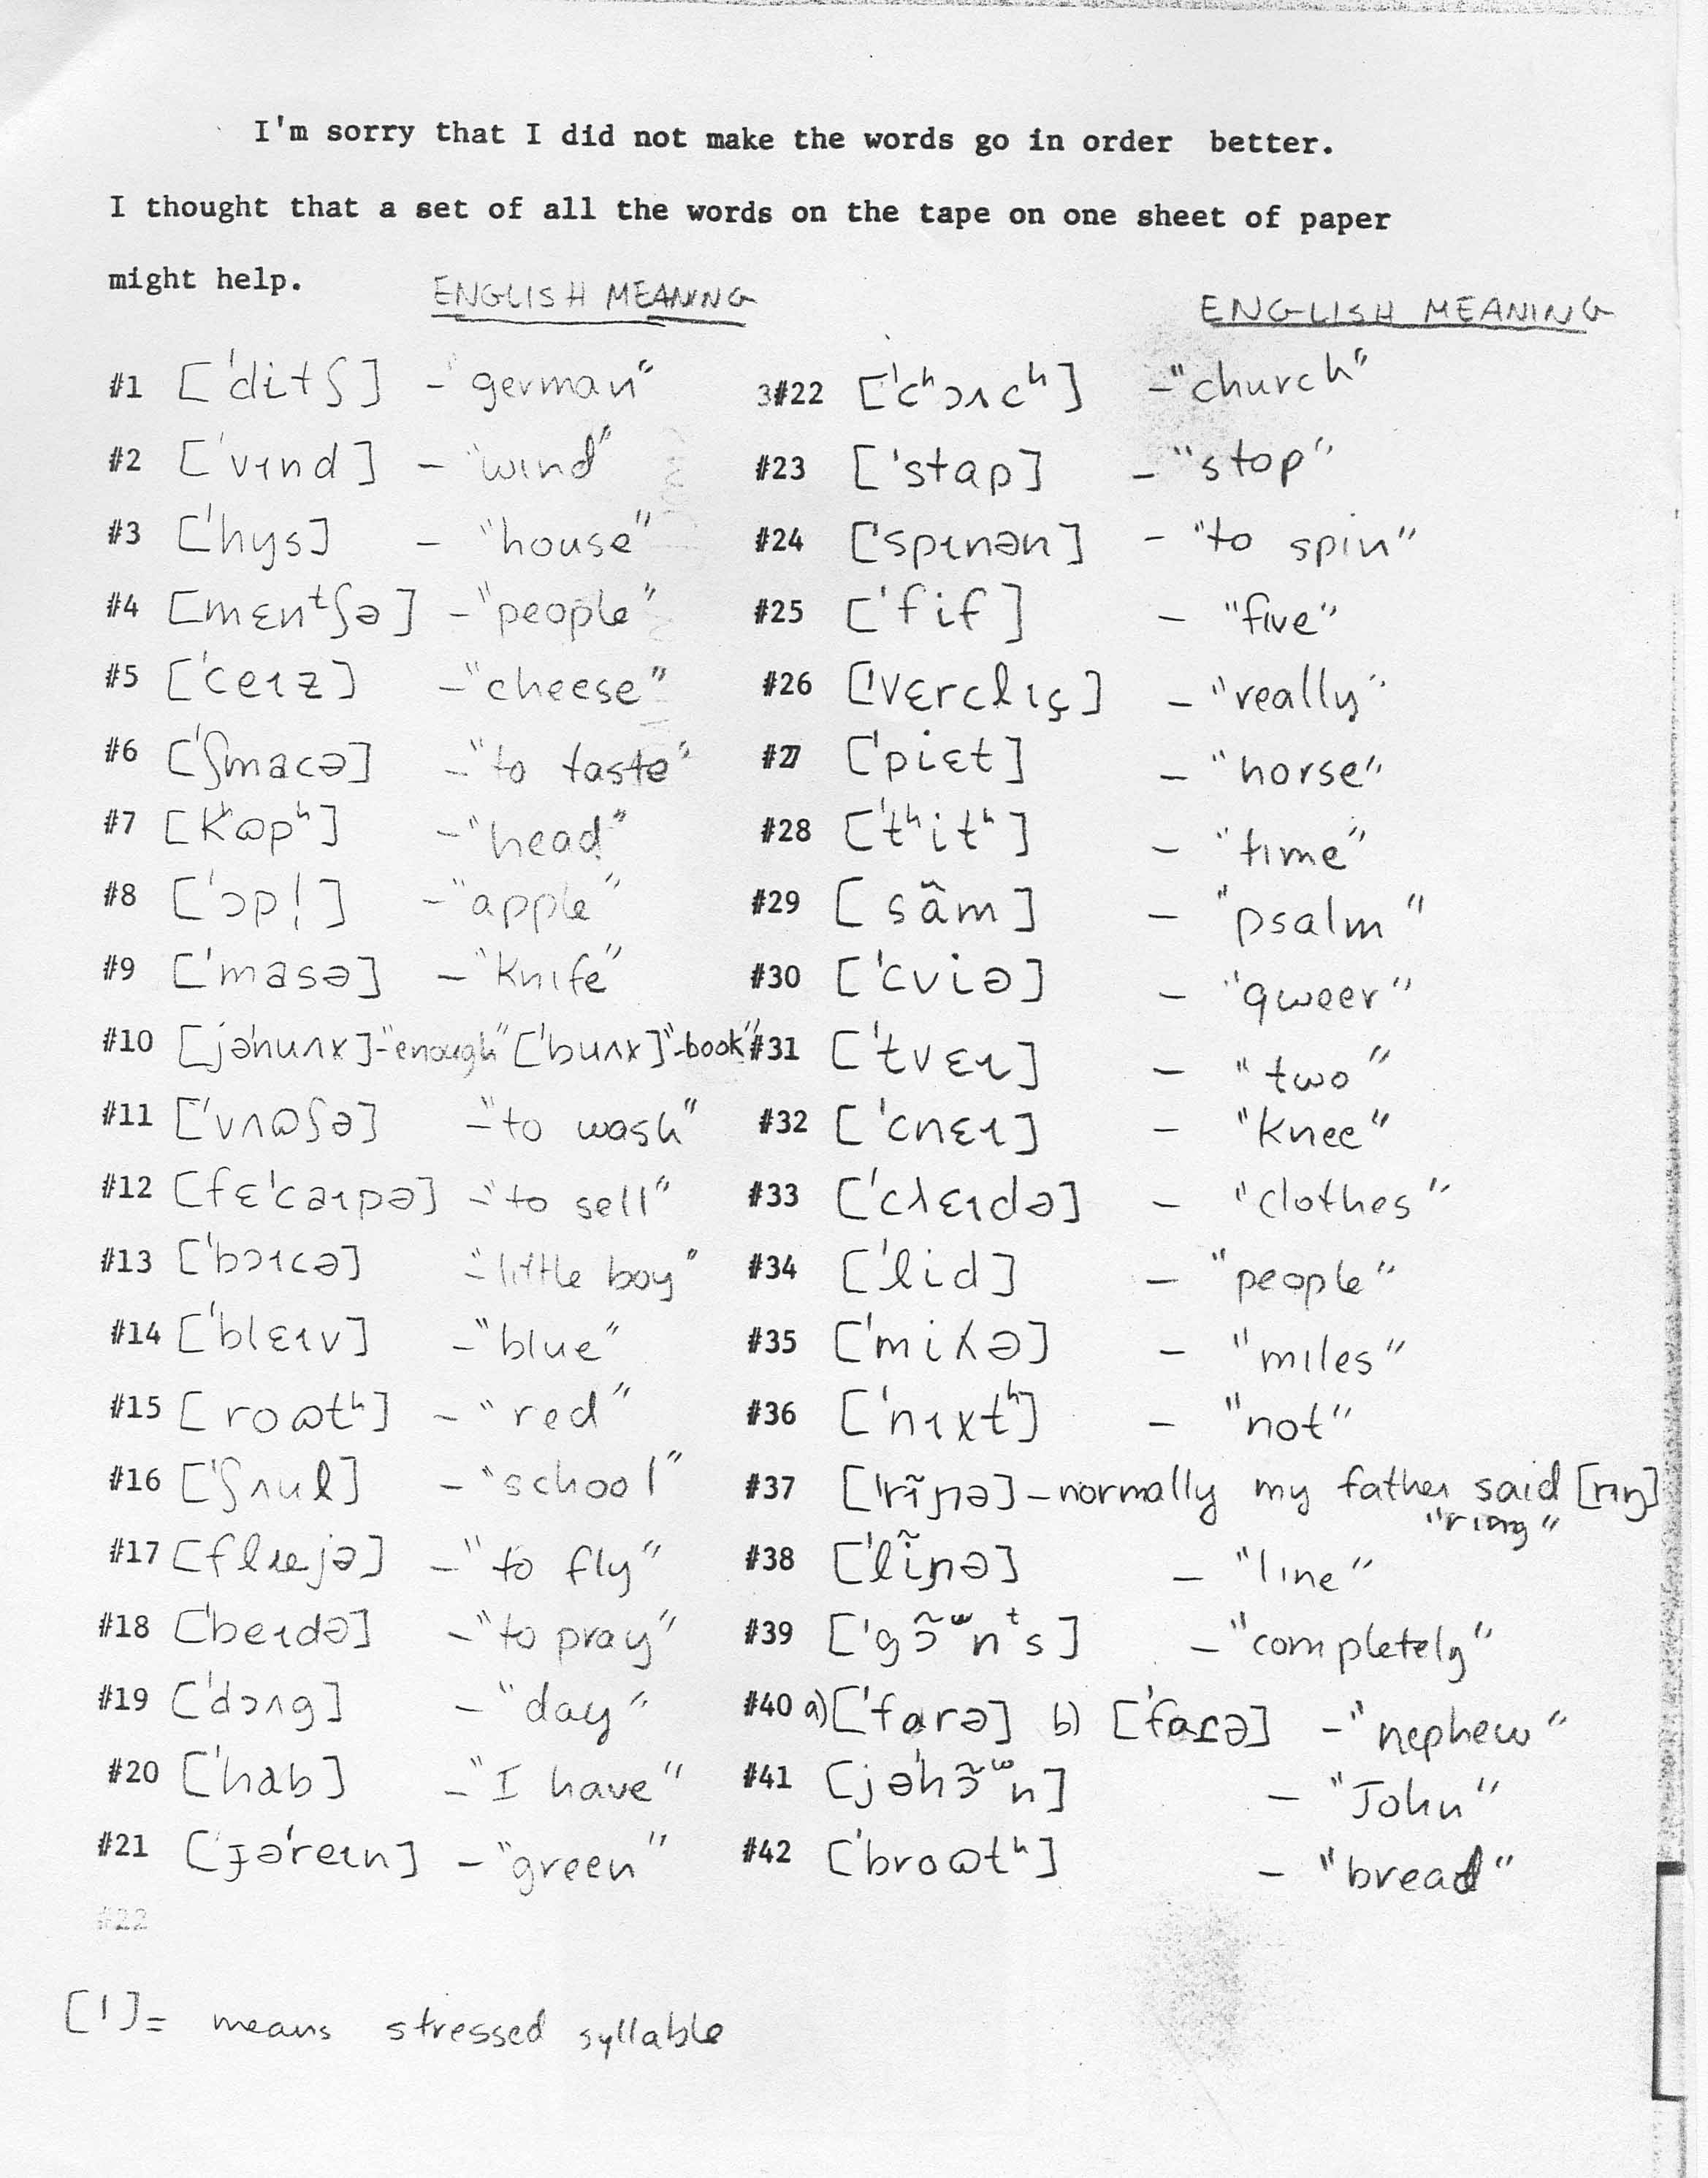 I'm sorry that I did not make the words go in order better.
I thought that a set of all the words on the tape on one sheet of paper
might help.
ENGLISH MEANING
#1 ['ditʃ] - "german"
#2 ['vɪnd] - "wind"
#3 ['hys] - "house"
#4 [mɛnᵗʃə] - "people"
#5 ['ceɪz] - "cheese"
#6 ['ʃmacə] - "to taste"
#7 [kʰɷpʰ] - "head"
#8 ['ɔpl̩] - "apple"
#9 ['masə] - "knife"
#10 [jə'nuʌx] - "enough" ['buʌx] - "book"
#11 ['vʌɷʃə] - "to wash"
#12 [fɛ'caɪpə] - "to sell"
#13 ['bɔɪcə] - "little boy"
#14 ['blɛɪv] - "blue"
#15 [roɷtʰ] - "red"
#16 ['ʃʌuɫ] - "school"
#17 [flɪejə] - "to fly"
#18 ['beɪdə] - "to pray"
#19 ['dɔʌg] - "day"
#20 ['hab] - "I have"
#21 [ɟə'reɪn] - "green"
#22
ENGLISH MEANING
3#22 ['cʰɔʌcʰ] - "church"
#23 ['stap] - "stop"
#24 ['spɪnən] - "to spin"
#25 ['fif] - "five"
#26 ['vɛrclɪç] - "really"
#27 ['piɛt] - "horse"
#28 ['tʰitʰ] - "time"
#29 [sãm] - "psalm"
#30 ['cviə] - "qweer"
#31 ['tvɛɪ] - "two"
#32 ['cnɛɪ] - "knee"
#33 ['cʎɛɪdə] - "clothes"
#34 ['lid] - "people"
#35 ['miʎə] - "miles"
#36 ['nɪxtʰ] - "not"
#37 ['rĩɲə] - normally my father said [rɪŋ]
"ring"
#38 ['lĩɲə] - "line"
#39 ['gɔ̃ʷnᵗs] - "completely"
#40 a) ['farə] b) ['faɾə] - "nephew"
#41 [jə'hɔ̃ʷn] - "John"
#42 ['broɷtʰ] - "bread"
['] = means stressed syllable